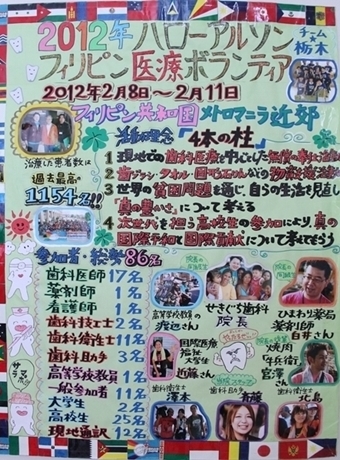 2012年 ハローアルソン
チーム栃木
フィリピン医療ボランティア
2012年2月8日～2月11日
フィリピン共和国 メトロマニラ近郊
活動理念「4本の柱」
1 現地での歯科医療を中心とした無償の
2 歯ブラシ・タオル・
3 世界の貧困問題を通じ、自らの生活を見直し
「真の豊かさ」について考える
4 次世代を担う高校生の参加により、真の
国際平和と国際貢献について考てもらう
治療した患者数は
過去最高の
1154名!!
参加者・総勢86名
歯科医師 17名
薬剤師 1名
看護師 1名
歯科技工士 2名
歯科衛生士 11名
歯科助手 3名
高等学校教員 1名
一般参加者 11名
大学生 2名
高校生 25名
現地通訳 12名
高等学校教員の
渡辺さん
せきぐち歯科
院長
ひまわり薬局
薬剤師
白井さん
国際医療
福祉
大学生
近藤さん
焼肉
宮澤さん
歯科衛生士
澤本
歯科助手
斎藤
歯科衛生士
北島